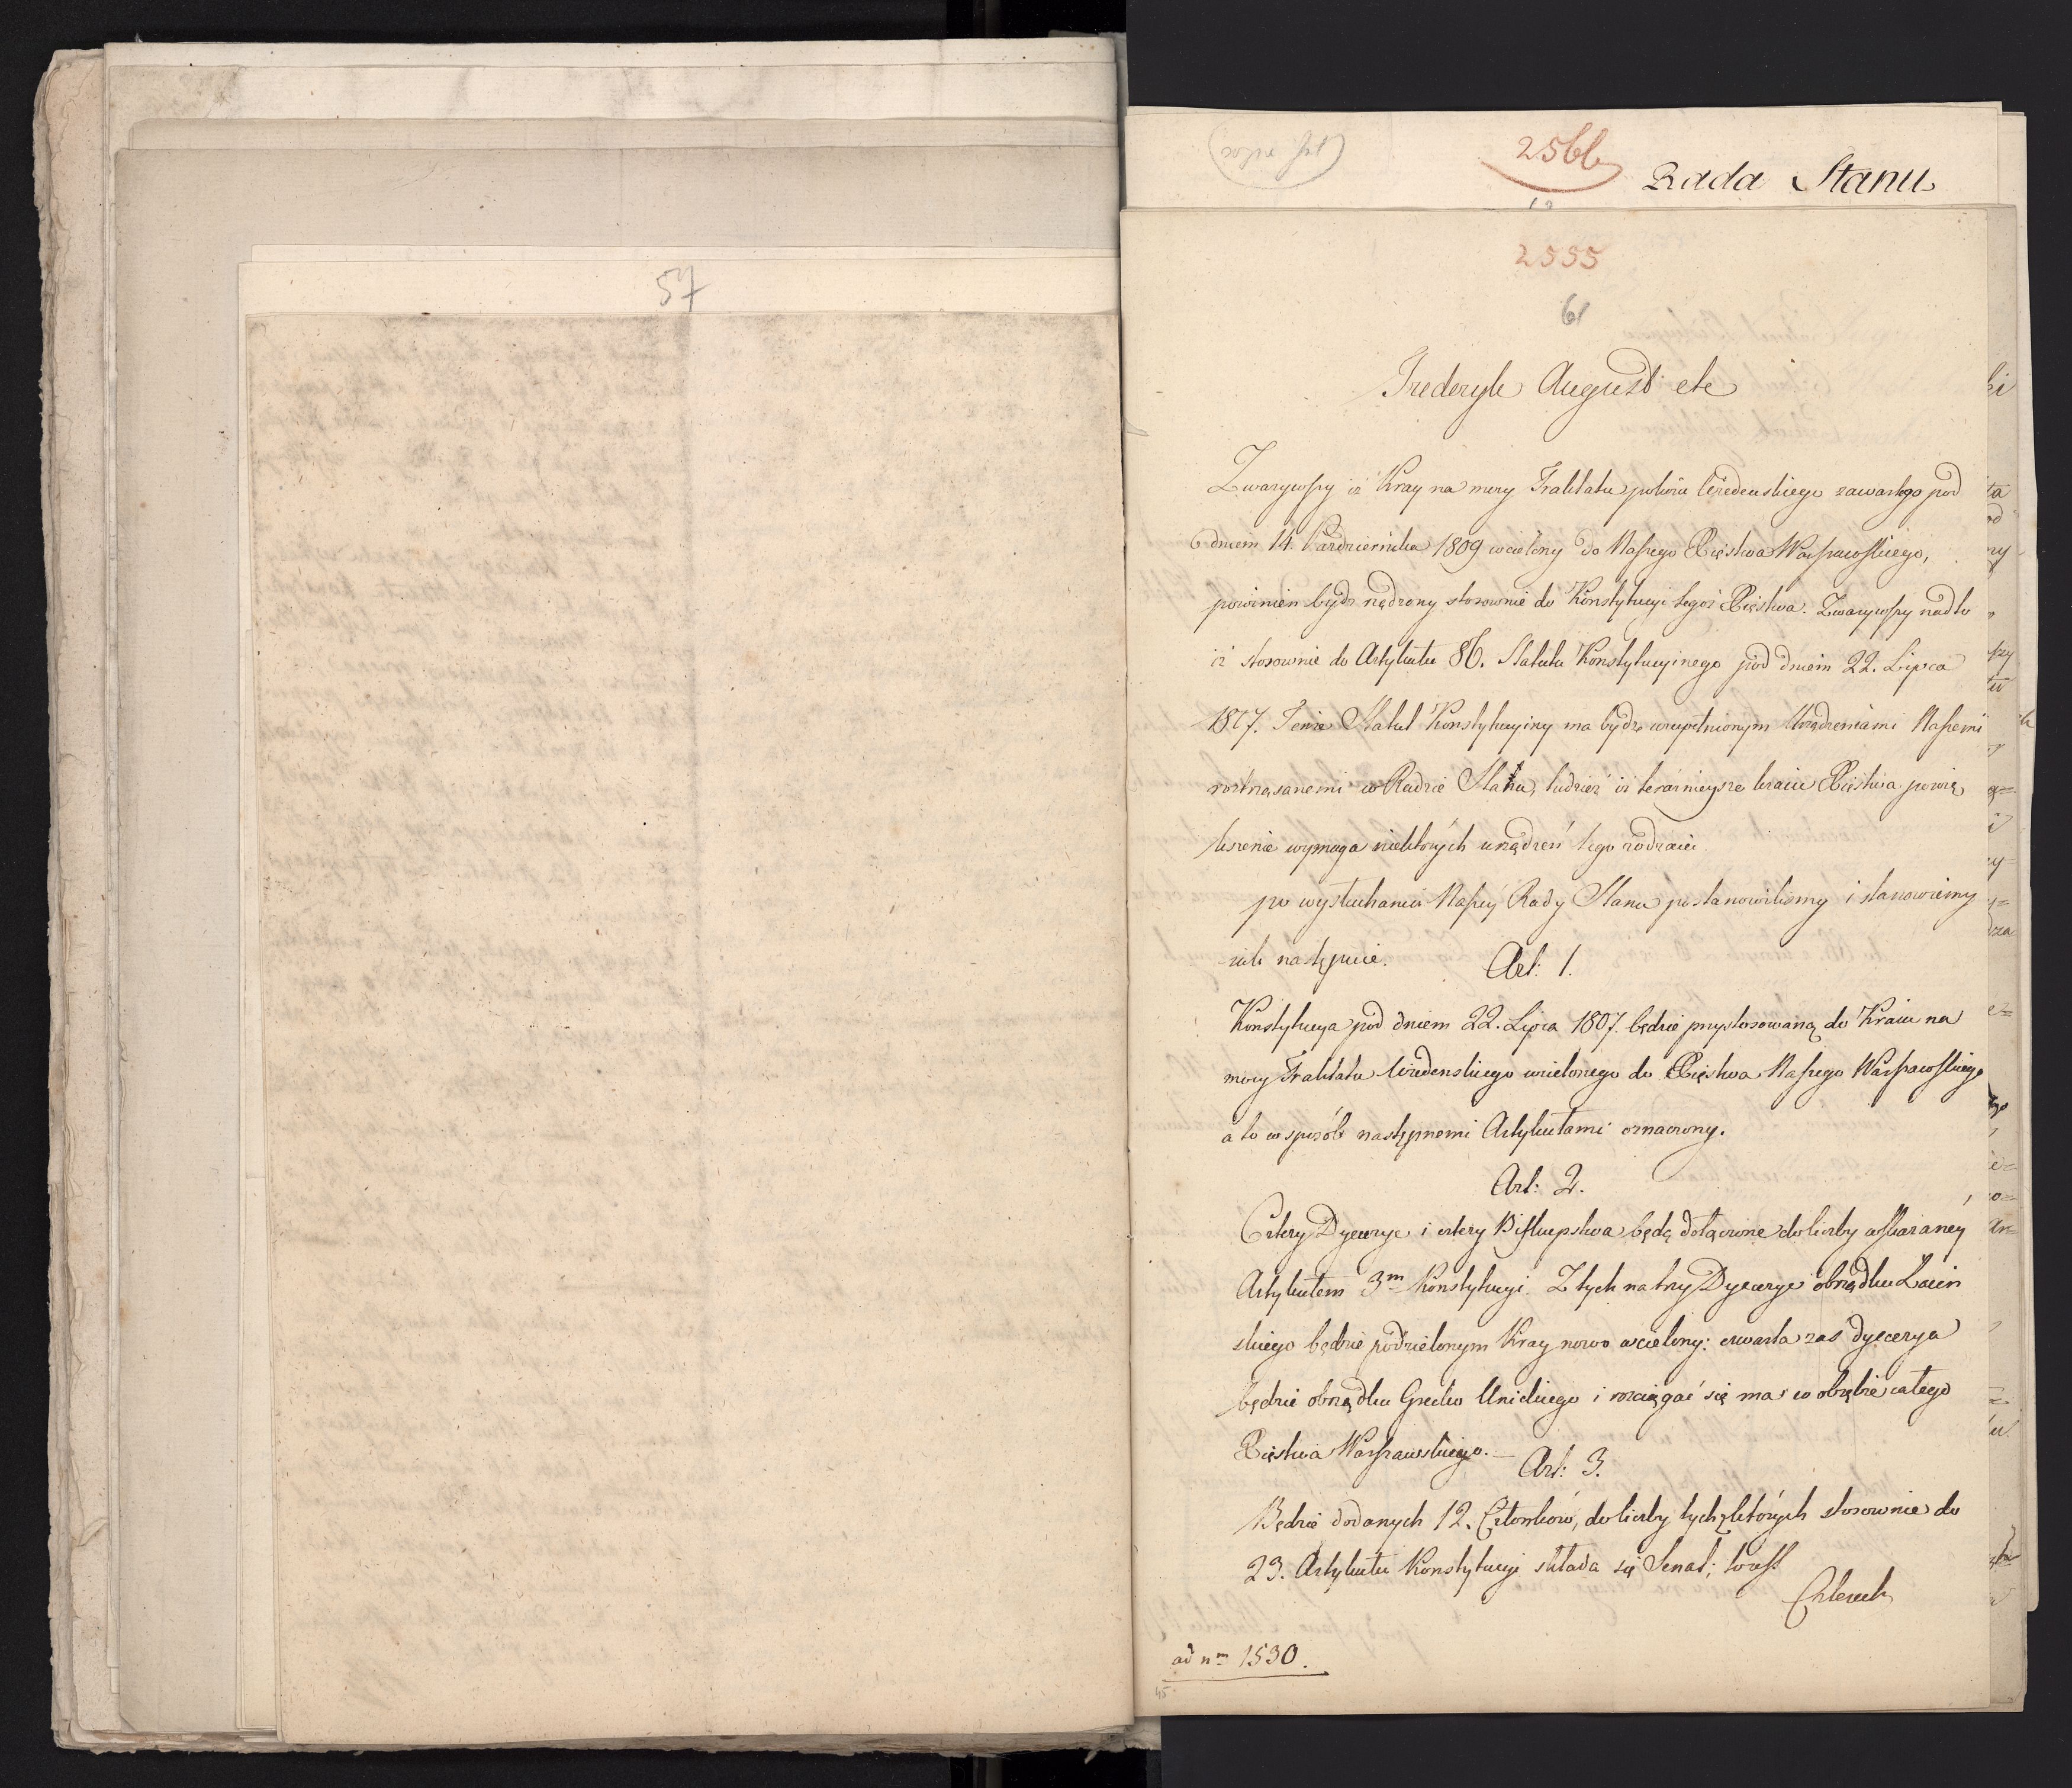 57
256b
Rada Stanu
2555
61
Fryderyk August etc
Zwarzywszy iż Kray na mocy Traktatu pokoiu Wiedenskiego zawartego pod
dniem 14. Pazdziernika 1809 wcielony do Naszego Xięstwa Warszawskiego,
powinien bydz rządzony stosownie do Konstytucyi tegoż Xięstwa. Zwarzywszy nadto
iż stosownie do Artykułu 86. Statutu Konstytucyinego pod dniem 22. Lipca
1807. Tenże Statut Konstytucyiny ma bydz uzupełnionym Urządzeniami Naszemi
roztrząsanemi w Radzie Stanu, tudzież iż teraznieysze kraiu Xięstwa powię
kszenie wymaga niektórych urządzeń tego rodzaiu.
po wysłuchaniu Naszey Rady Stanu postanowilismy i stanowiemy
iak następuie.
Art: 1.
Konstytucya pod dniem 22. Lipca 1807. będzie przystosowaną do Kraiu na
mocy Traktatu Wiedenskiego wcielonego do Xięstwa Naszego Warszawskiego
a to w sposób następnemi Artykułami oznaczony.
Art: 2.
Cztery Dyecezye i cztery Biskupstwa będą dołączone do liczby wskazaney
Artykułem 3m Konstytucyi. Z tych na trzy Dyecezye obrządku Łacin
skiego będzie podzielonym Kray nowo wcielony: czwarta zas dyecezya
będzie obrządku Grecko Unickiego i rozciągać się ma w obrębie całego
Xięstwa Warszawskiego. —
Art: 3.
Będzie dodanych 12. Członków, do liczby tych z których stosownie do
23. Artykułu Konstytucyi składa się Senat; to iest
Czterech
ad nm 1530.
45